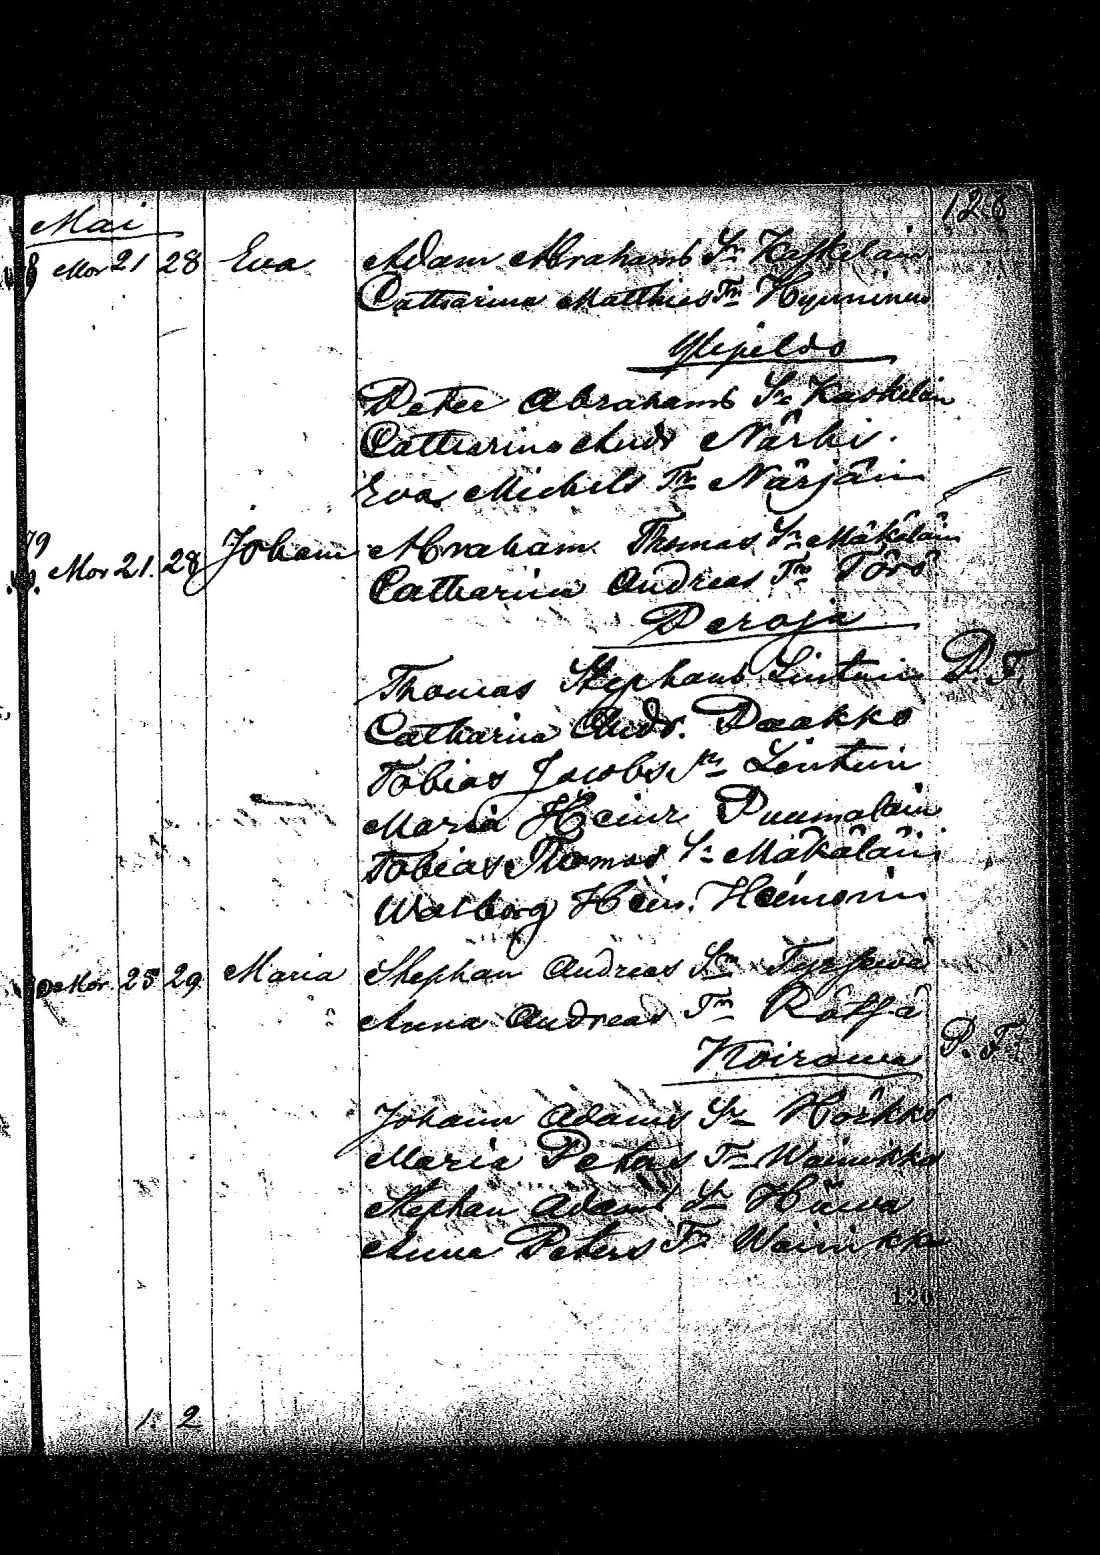 128
Mai
Mor 21 28 Eva Adam Abrahams Sn Kaskelain
Catharina Matthies Tn Hynninen
Ylipeldo
Peter Abrahams Sn Kaskelain
Catharina Andr Närhi.
Eva Michels Tr Närjäin
79
Mor 21. 28 Johann Abraham Thomas Sn Mäkeläin
Catharina Andreas Tn Törö
Peroja
Thomas Stephans Lintuin P. T.
Catharina Andr. Paakko
Tobias Jacobs Sn Lintuin
Maria Heinr Puumalain
Tobias Thomas Sn Mäkäläin
Walborg Hein. Heimonin
Mor. 25 29 Maria Stephan Andreas Sn
Anna Andreas Tn Rätjä
Koirowa P. T.
Johann Adams Sn Hörkkö
Maria Peters Tn Wainikka
Stephan Adams Sn
Anna Peters Tr Wainikka
120
1. 2